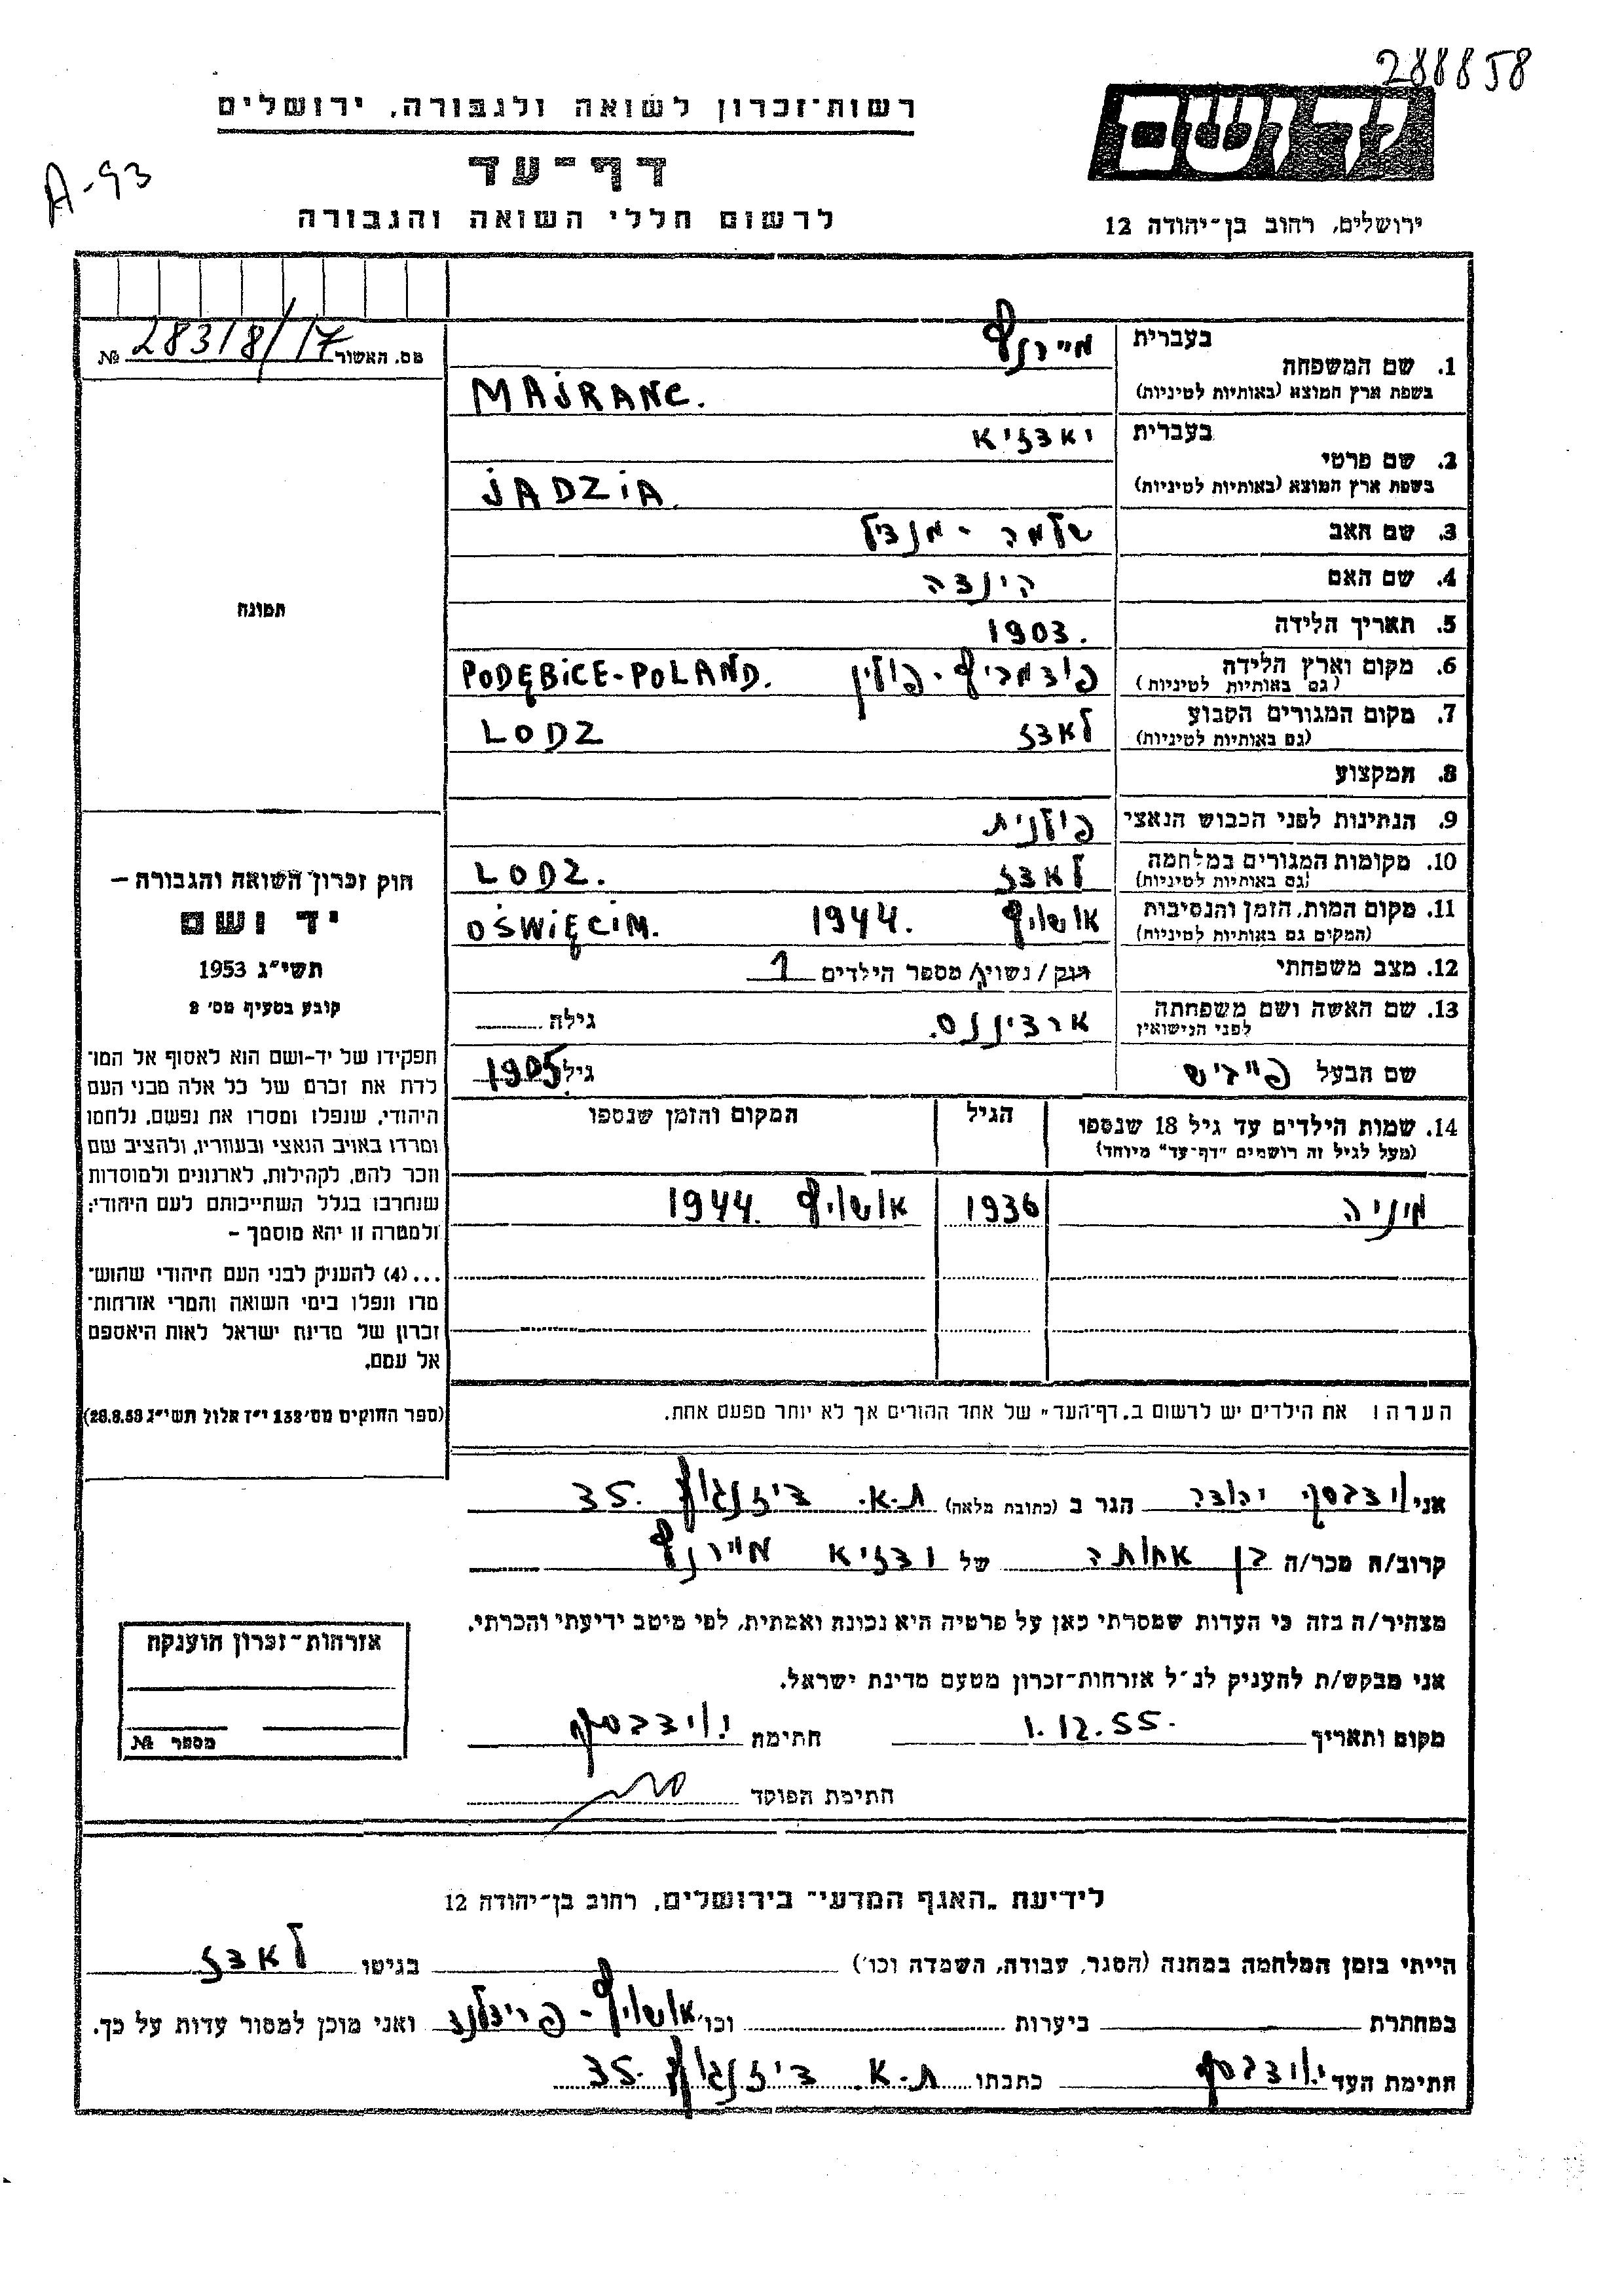 288858
רשות־זכרון לשואה ולגבורה, ירושלים
יד ושם
A-93
דף־עד
לרשום חללי השואה והגבורה
ירושלים, רחוב בן־יהודה 12
מס. האשור 28318/17 №
בעברית
1. שם המשפחה
מיירנץ
בשפת ארץ המוצא (באותיות לטיניות)
MAJRANC.
בעברית
2. שם פרטי
יאדזיא
בשפת ארץ המוצא (באותיות לטיניות)
JADZIA.
3. שם האב שלמה - מנדיל
4. שם האם הינדה
5. תאריך הלידה 1903.
6. מקום וארץ הלידה
(גם באותיות לטיניות)
פולין PODĘBICE-POLAND.
7. מקום המגורים הקבוע
(גם באותיות לטיניות)
לאדז LODZ
8. המקצוע
9. הנתינות לפני הכבוש הנאצי פולנית
10. מקומות המגורים במלחמה
(גם באותיות לטיניות)
לאדז LODZ.
11. מקום המות, הזמן והנסיבות
(המקום גם באותיות לטיניות)
אושויץ 1944. OŚWIĘCIM.
12. מצב משפחתי רוק / נשוי/ מספר הילדים 1
13. שם האשה ושם משפחתה
לפני הנישואין
גילה
שם הבעל פייביש גיל 1905
14. שמות הילדים עד גיל 18 שנספו
(מעל לגיל זה רושמים "דף־עד" מיוחד)
הגיל
המקום והזמן שנספו
מיניה 1936 אושויץ 1944.
הערה: את הילדים יש לרשום ב"דף־העד" של אחד ההורים אך לא יותר מפעם אחת.
תמונה
חוק זכרון השואה והגבורה –
יד ושם
תשי"ג 1953
קובע בסעיף מס' 2
תפקידו של יד-ושם הוא לאסוף אל המו־
לדת את זכרם של כל אלה מבני העם
היהודי, שנפלו ומסרו את נפשם, נלחמו
ומרדו באויב הנאצי ובעוזריו, ולהציב שם
וזכר להם, לקהילות, לארגונים ולמוסדות
שנחרבו בגלל השתייכותם לעם היהודי;
ולמטרה זו יהא מוסמך –
...(4) להעניק לבני העם היהודי שהוש־
מדו ונפלו בימי השואה והמרי אזרחות־
זכרון של מדינת ישראל לאות היאספם
אל עמם.
(ספר החוקים מס' 132 י"ז אלול תשי"ג 28.8.53)
אני יהודה הגר ב (כתובת מלאה) ת.א. דיזנגוף 35.
קרוב/ה מכר/ה בן אחותה של ודזיא מיירנץ
מצהיר/ה בזה כי העדות שמסרתי כאן על פרטיה היא נכונה ואמתית, לפי מיטב ידיעתי והכרתי.
אני מבקש/ת להעניק לנ"ל אזרחות־זכרון מטעם מדינת ישראל.
מקום ותאריך 1.12.55. חתימה
חתימת הפוקד
אזרחות־זכרון הוענקה
מספר №
לידיעת "האגף המדעי" בירושלים, רחוב בן־יהודה 12
הייתי בזמן המלחמה במחנה (הסגר, עבודה, השמדה וכו') בגיטו לאדז
במחתרת ביערות וכו' אושויץ - ואני מוכן למסור עדות על כך.
חתימת העד כתבתו ת.א. דיזנגוף 35.